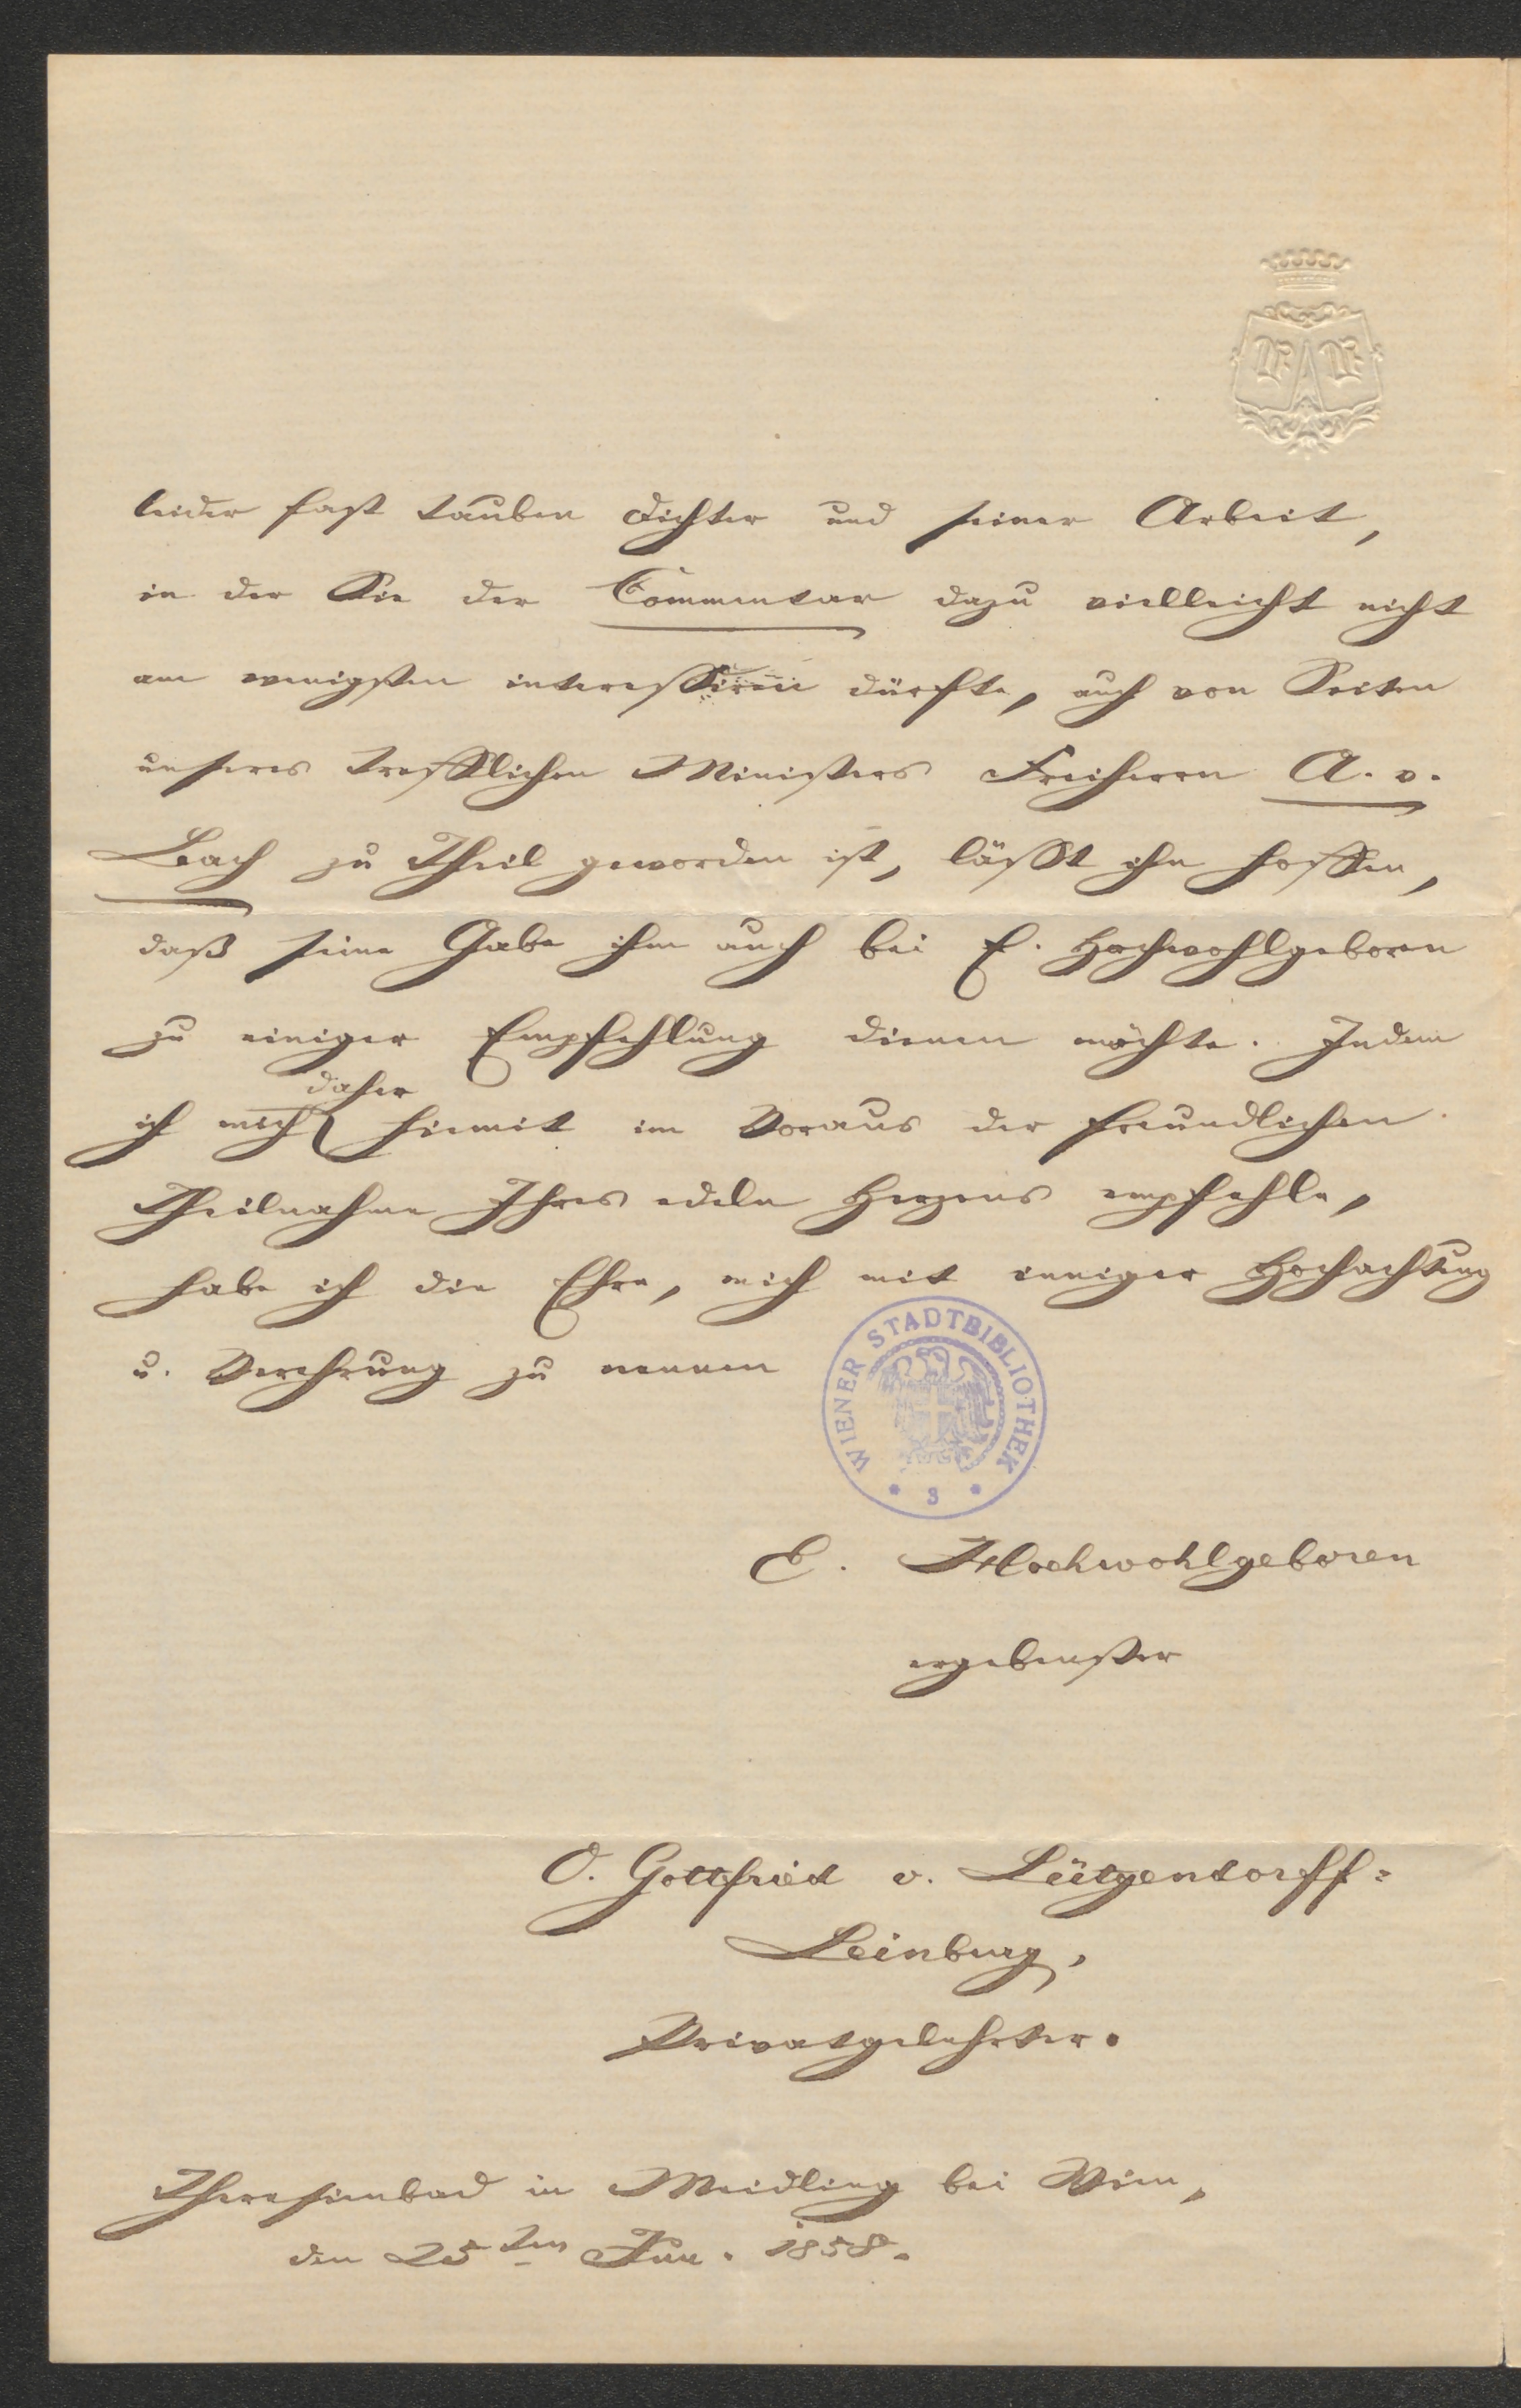 leider fast tauben Dichter und seiner Arbeit,
in der Sie der Commentar dazu vielleicht nicht
am wenigsten interessiren dürfte, auch von Seiten
unseres trefflichen Ministers Freiherrn A. v.
Bach zu Theil geworden ist, lässt ihn hoffen,
daß seine Gabe ihm auch bei E. Hochwohlgeboren
zu einiger Empfehlung dienen möchte. Indem
daher
ich mich hiemit im Voraus der freundlichen
Theilnahme Ihres edeln Herzens empfehle,
habe ich die Ehre, mich mit inniger Hochachtung
u. Verehrung zu nennen
WIENER STADTBIBLIOTHEK
* 3 *
E. Hochwohlgeboren
ergebenster
O. Gottfried v. Leitgendorff=
Leinburg,
Privatgelehrter.
Theresienbad in Meidling bei Wien,
den 25ten Jun. 1858.